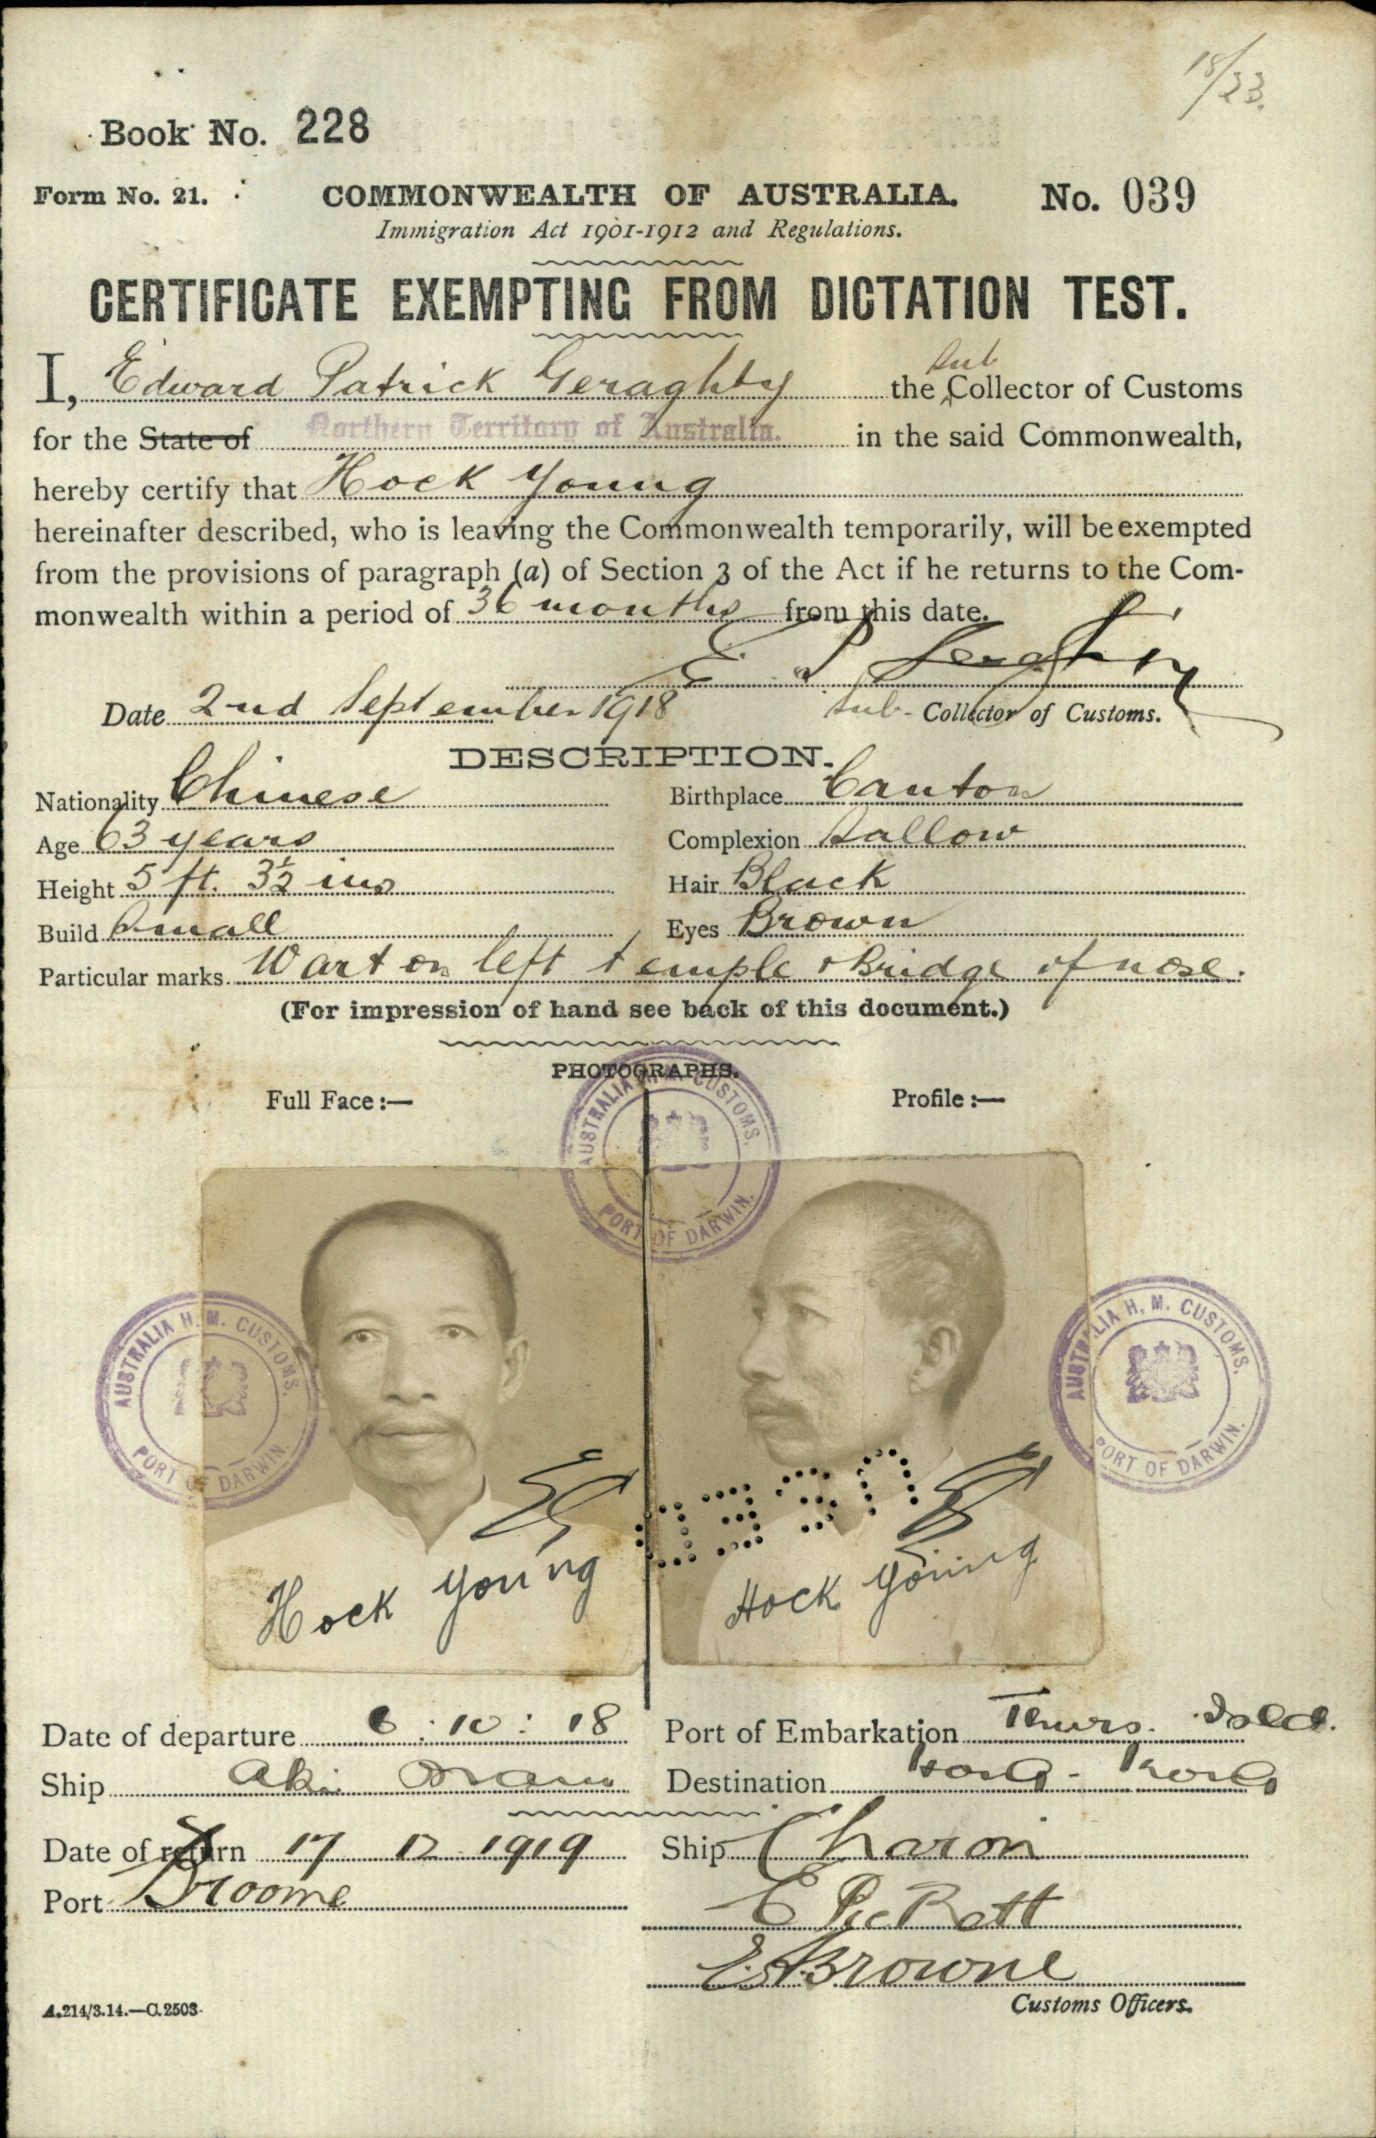 18/23.
Book No. 228
Form No. 21. COMMONWEALTH OF AUSTRALIA. No. 039
Immigration Act 1901-1912 and Regulations.
CERTIFICATE EXEMPTING FROM DICTATION TEST.
I, Edward Patrick Geraghty the Sub Collector of Customs
for the State of Northern Territory of Australia. in the said Commonwealth,
hereby certify that Hock Young
hereinafter described, who is leaving the Commonwealth temporarily, will be exempted
from the provisions of paragraph (a) of Section 3 of the Act if he returns to the Com-
monwealth within a period of 36 months from this date.
E P Geraghty
Date 2nd September 1918 Sub- Collector of Customs.
DESCRIPTION.
Nationality Chinese Birthplace Canton
Age 63 years Complexion Sallow
Height 5 ft. 3½ ins Hair Black
Build Small Eyes Brown
Particular marks Wart on left temple & Bridge of nose.
(For impression of hand see back of this document.)
PHOTOGRAPHS.
Full Face:— Profile:—
AUSTRALIA H. M. CUSTOMS. PORT OF DARWIN.
AUSTRALIA H. M. CUSTOMS. PORT OF DARWIN.
AUSTRALIA H. M. CUSTOMS. PORT OF DARWIN.
USED
Hock Young Hock Young
Date of departure 6 : 10 : 18 Port of Embarkation Thurs. Isld.
Ship Aki Maru Destination Hong-Kong
Date of return 17 12 1919 Ship Charon
Port Broome
E Pickett
E. Browne
Customs Officers.
A.214/3.14.—C.2503.